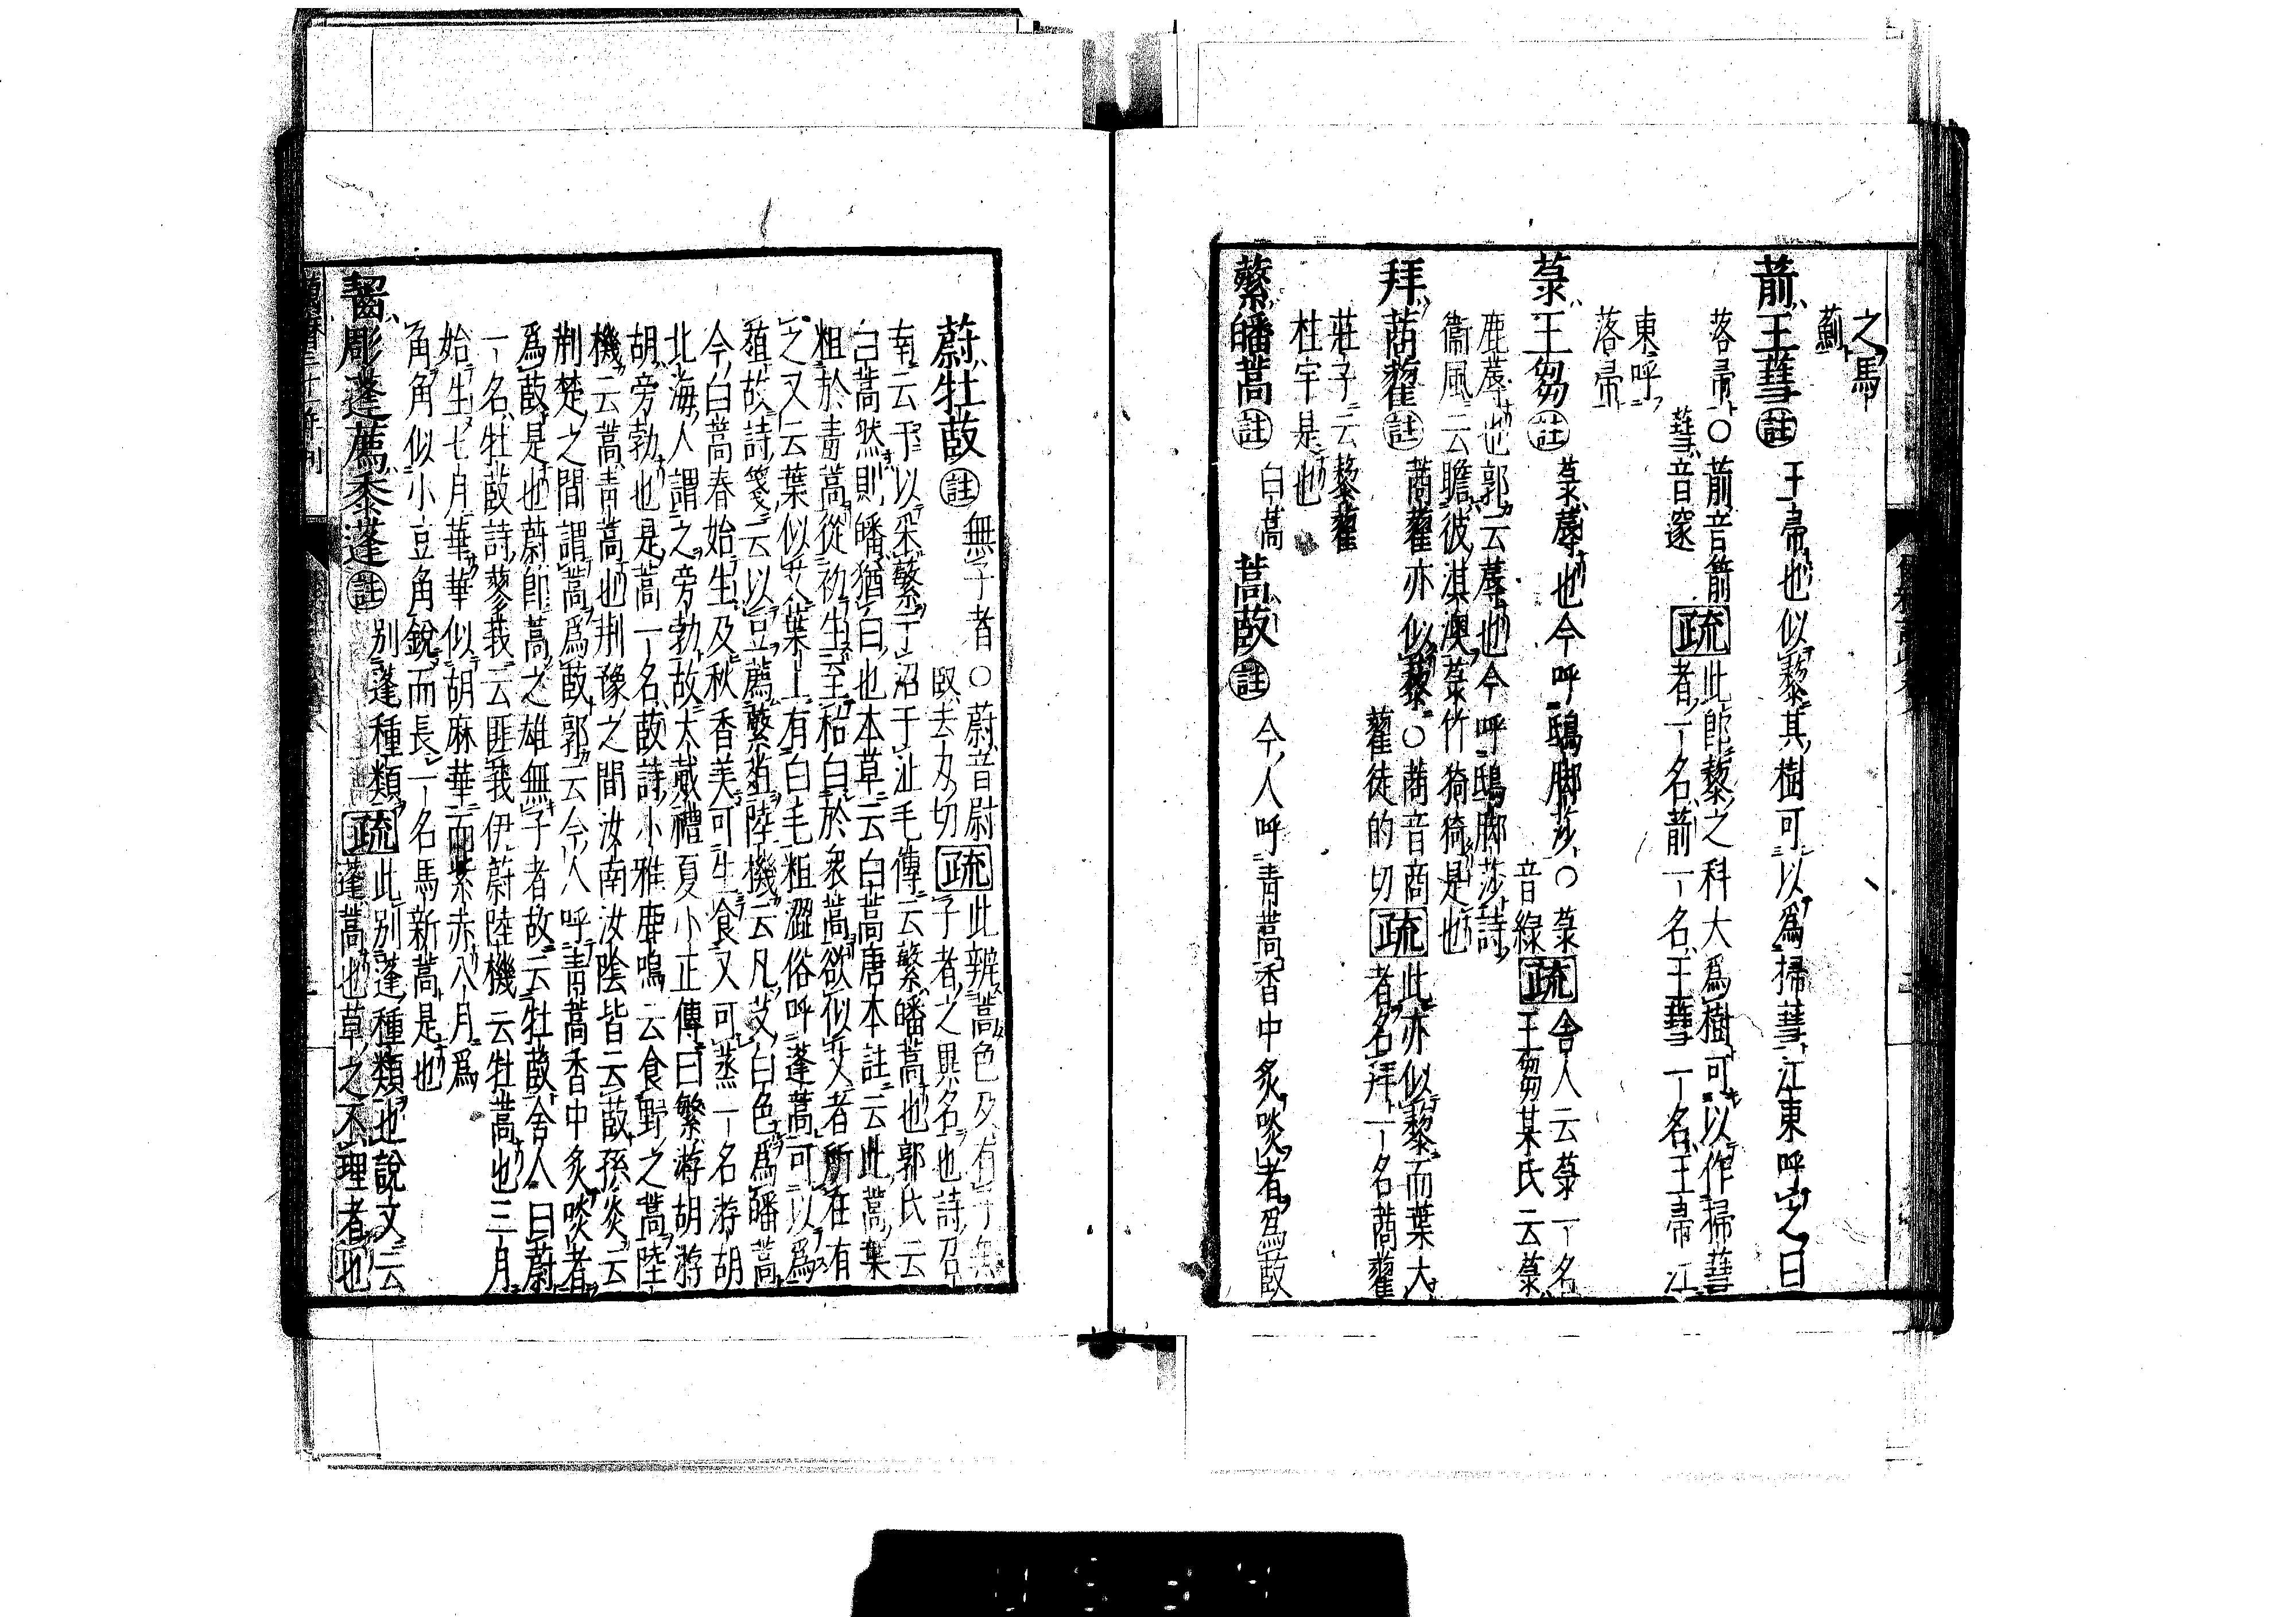 之馬
薊
葥王蔧註王帚也似藜其樹可以爲掃蔧江東呼之曰
落帚○葥音箭
蔧音遂
疏此即藜之科大爲樹可以作掃蔧
者一名葥一名王蔧一名王帚江
東呼
落帚
菉王芻註菉蓐也今呼鴟脚莎○菉
音綠
疏舍人云菉一名
王芻某氏云菉
鹿蓐也郭云蓐也今呼鴟脚莎詩
衞風云瞻彼淇澳菉竹猗猗是也
拜蔏藋註蔏藋亦似藜○蔏音商
藋徒的切
疏此亦似藜而葉大
者名拜一名蔏藋
莊子云藜藋
柱宇是也
蘩皤蒿註白蒿
蒿菣註今人呼青蒿香中炙啖者爲菣
蔚牡菣註無子者○蔚音尉
菣去刃切
疏此辨蒿色及有子無
子者之異名也詩召
南云于以采蘩于沼于沚毛傳云蘩皤蒿也郭氏云
白蒿然則皤猶白也本草云白蒿唐本註云此蒿葉
粗於青蒿從初生至枯白於衆蒿欲似艾者所在有
之又云葉似艾葉上有白毛粗澀俗呼蓬蒿可以爲
葅故詩箋云以豆薦蘩葅陸機云凡艾白色爲皤蒿
今白蒿春始生及秋香美可生食又可蒸一名游胡
北海人謂之旁勃故大戴禮夏小正傳曰蘩游胡游
胡旁勃也是蒿一名菣詩小雅鹿鳴云食野之蒿陸
機云蒿青蒿也荆豫之間汝南汝陰皆云菣孫炎云
荆楚之間謂蒿爲菣郭云今人呼青蒿香中炙啖者
爲菣是也蔚即蒿之雄無子者故云牡菣舍人曰蔚
一名牡菣詩蓼莪云匪莪伊蔚陸機云牡蒿也三月
始生七月華華似胡麻華而紫赤八月爲
角角似小豆角銳而長一名馬新蒿是也
齧彫蓬薦黍蓬註別蓬種類
疏此別蓬種類也說文云
蓬蒿也草之不理者也